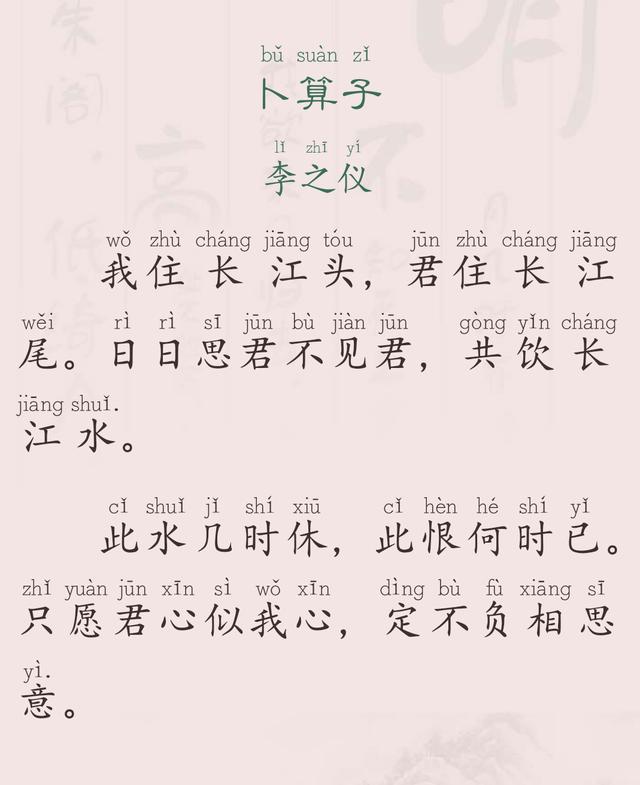 bǔ suàn zǐ
卜算子
lǐ zhī yí
李之仪
wǒ zhù cháng jiāng tóu jūn zhù cháng jiāng
我住长江头，君住长江
wěi rì rì sī jūn bù jiàn jūn gòng yǐn cháng
尾。日日思君不见君，共饮长
jiāng shuǐ.
江水。
cǐ shuǐ jǐ shí xiū cǐ hèn hé shí yǐ
此水几时休，此恨何时已。
zhǐ yuàn jūn xīn sì wǒ xīn dìng bù fù xiāng sī
只愿君心似我心，定不负相思
yì.
意。